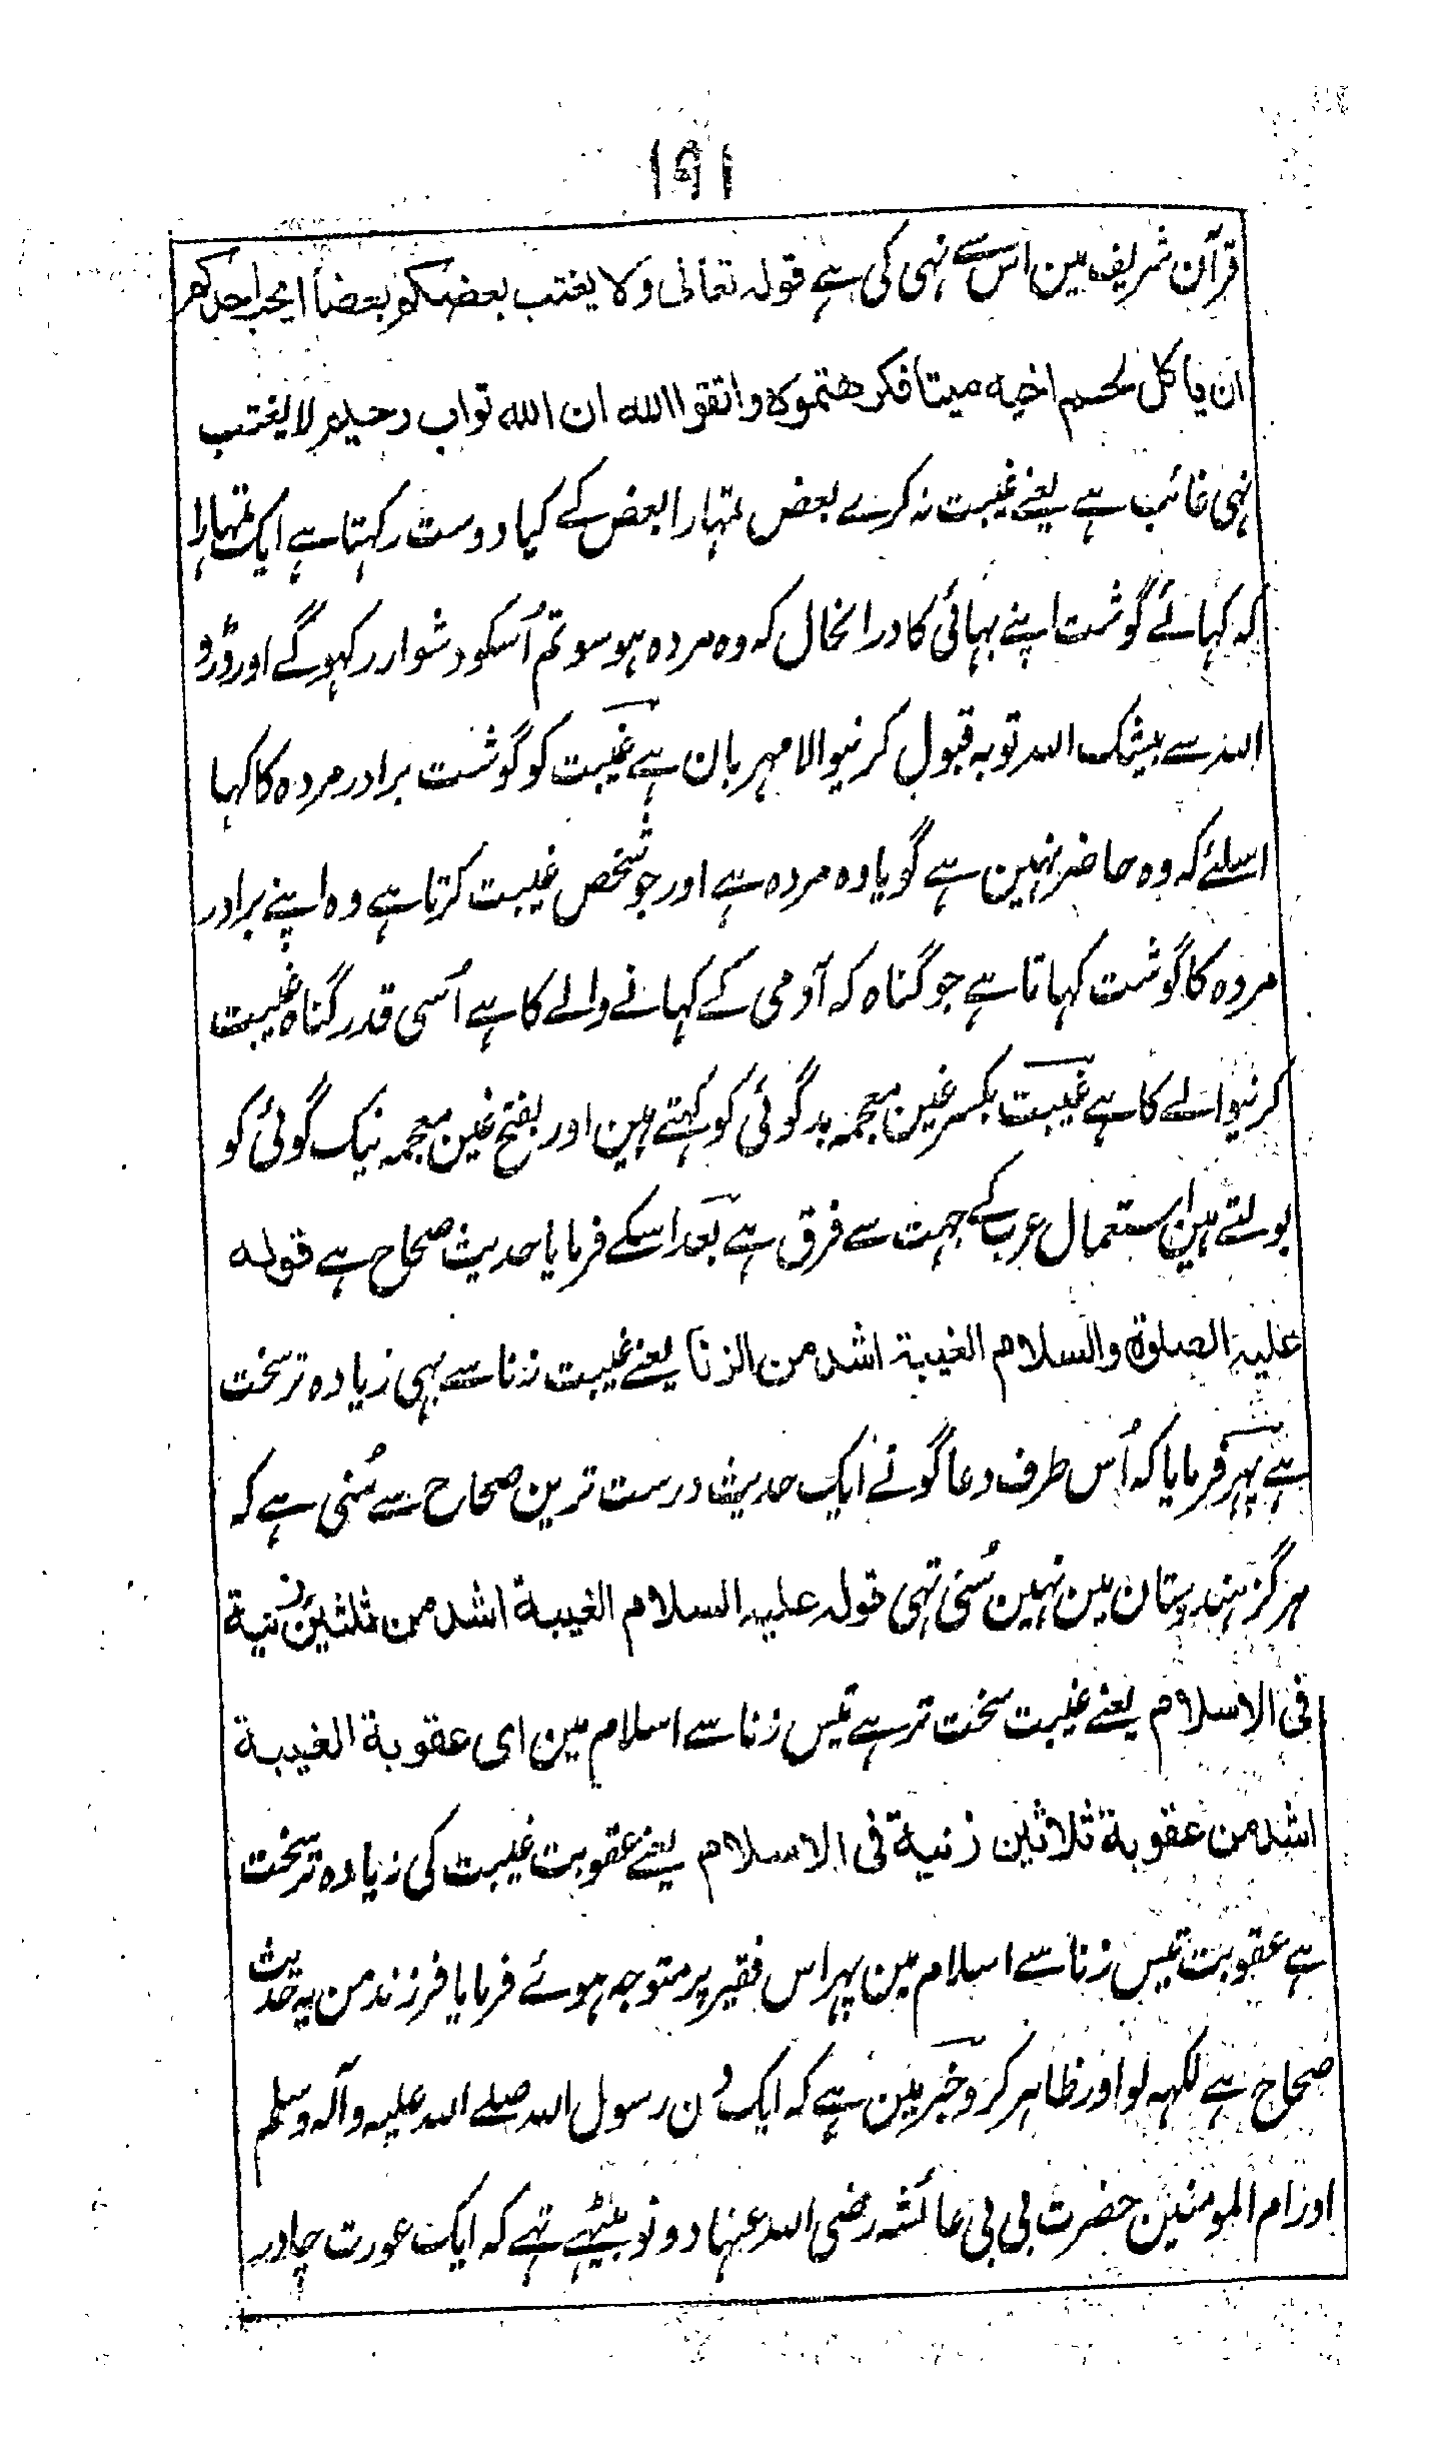 ۱۹۱
قرآن شریف مین اس سے نہی کی ہے قولہ تعالی ولا یغتب بعضکم بعضا ایحب احدکم
ان یاکل لحم اخیه میتا فکرهتموه واتقوا الله ان الله تواب رحیم لا یغتب
نہی غائب ہے یعنے غیبت نہ کرے بعض تمہارا بعض کے کیا دوست رکہتا ہے ایک تمہارا
کہ کہائے گوشت اپنے بہائی کا درانحال کہ وہ مردہ ہو سو تم اُسکو دشوار رکہو گے اور ڈرو
اللہ سے بیشک اللہ توبہ قبول کرنیوالا مہربان ہے غیبت کو گوشت برادر مردہ کا کہا
اسلئے کہ وہ حاضر نہین ہے گویا وہ مردہ ہے اور جو شخص غیبت کرتا ہے وہ اپنے برادر
مردہ کا گوشت کہاتا ہے جو گناہ کہ آدمی کے کہانے والے کا ہے اُسی قدر گناہ غیبت
کرنیوالے کا ہے غیبت بکسر غین معجمہ بدگوئی کو کہتے ہین اور بفتح غین معجمہ نیک گوئی کو
بولتے ہین استعمال عرب کے جہت سے فرق ہے بعد اسکے فرمایا حدیث صحاح ہے قولہ
علیہ الصلوة والسلام الغیبة اشد من الزنا یعنے غیبت زنا سے بہی زیادہ تر سخت
ہے پہر فرمایا کہ اُس طرف دعاگو نے ایک حدیث درست ترین صحاح سے سُنی ہے کہ
ہرگز ہندوستان مین نہین سُنی تہی قولہ علیہ السلام الغیبة اشد من ثلثین زنیة
فی الاسلام یعنے غیبت سخت تر ہے تیس زنا سے اسلام مین ای عقوبة الغیبة
اشد من عقوبة ثلاثین زنیة فی الاسلام یعنے عقوبت غیبت کی زیادہ تر سخت
ہے عقوبت تیس زنا سے اسلام مین پہر اس فقیر پر متوجہ ہوئے فرمایا فرزند من یہ حدیث
صحاح ہے لکہہ لو اور ظاہر کرو خبر مین ہے کہ ایک دن رسول اللہ صلے اللہ علیہ وآلہ وسلم
اور ام المومنین حضرت بی بی عائشہ رضی اللہ عنہا دونو بیٹہے تہے کہ ایک عورت چادر